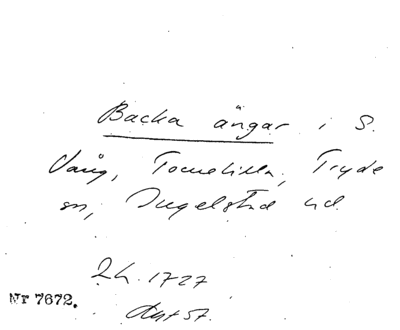 Backa ängar i S.
Vång, Tomelilla, Tryde
sn, Ingelstad hd.
Lh. 1727
Nr 7672.
Akt 57.